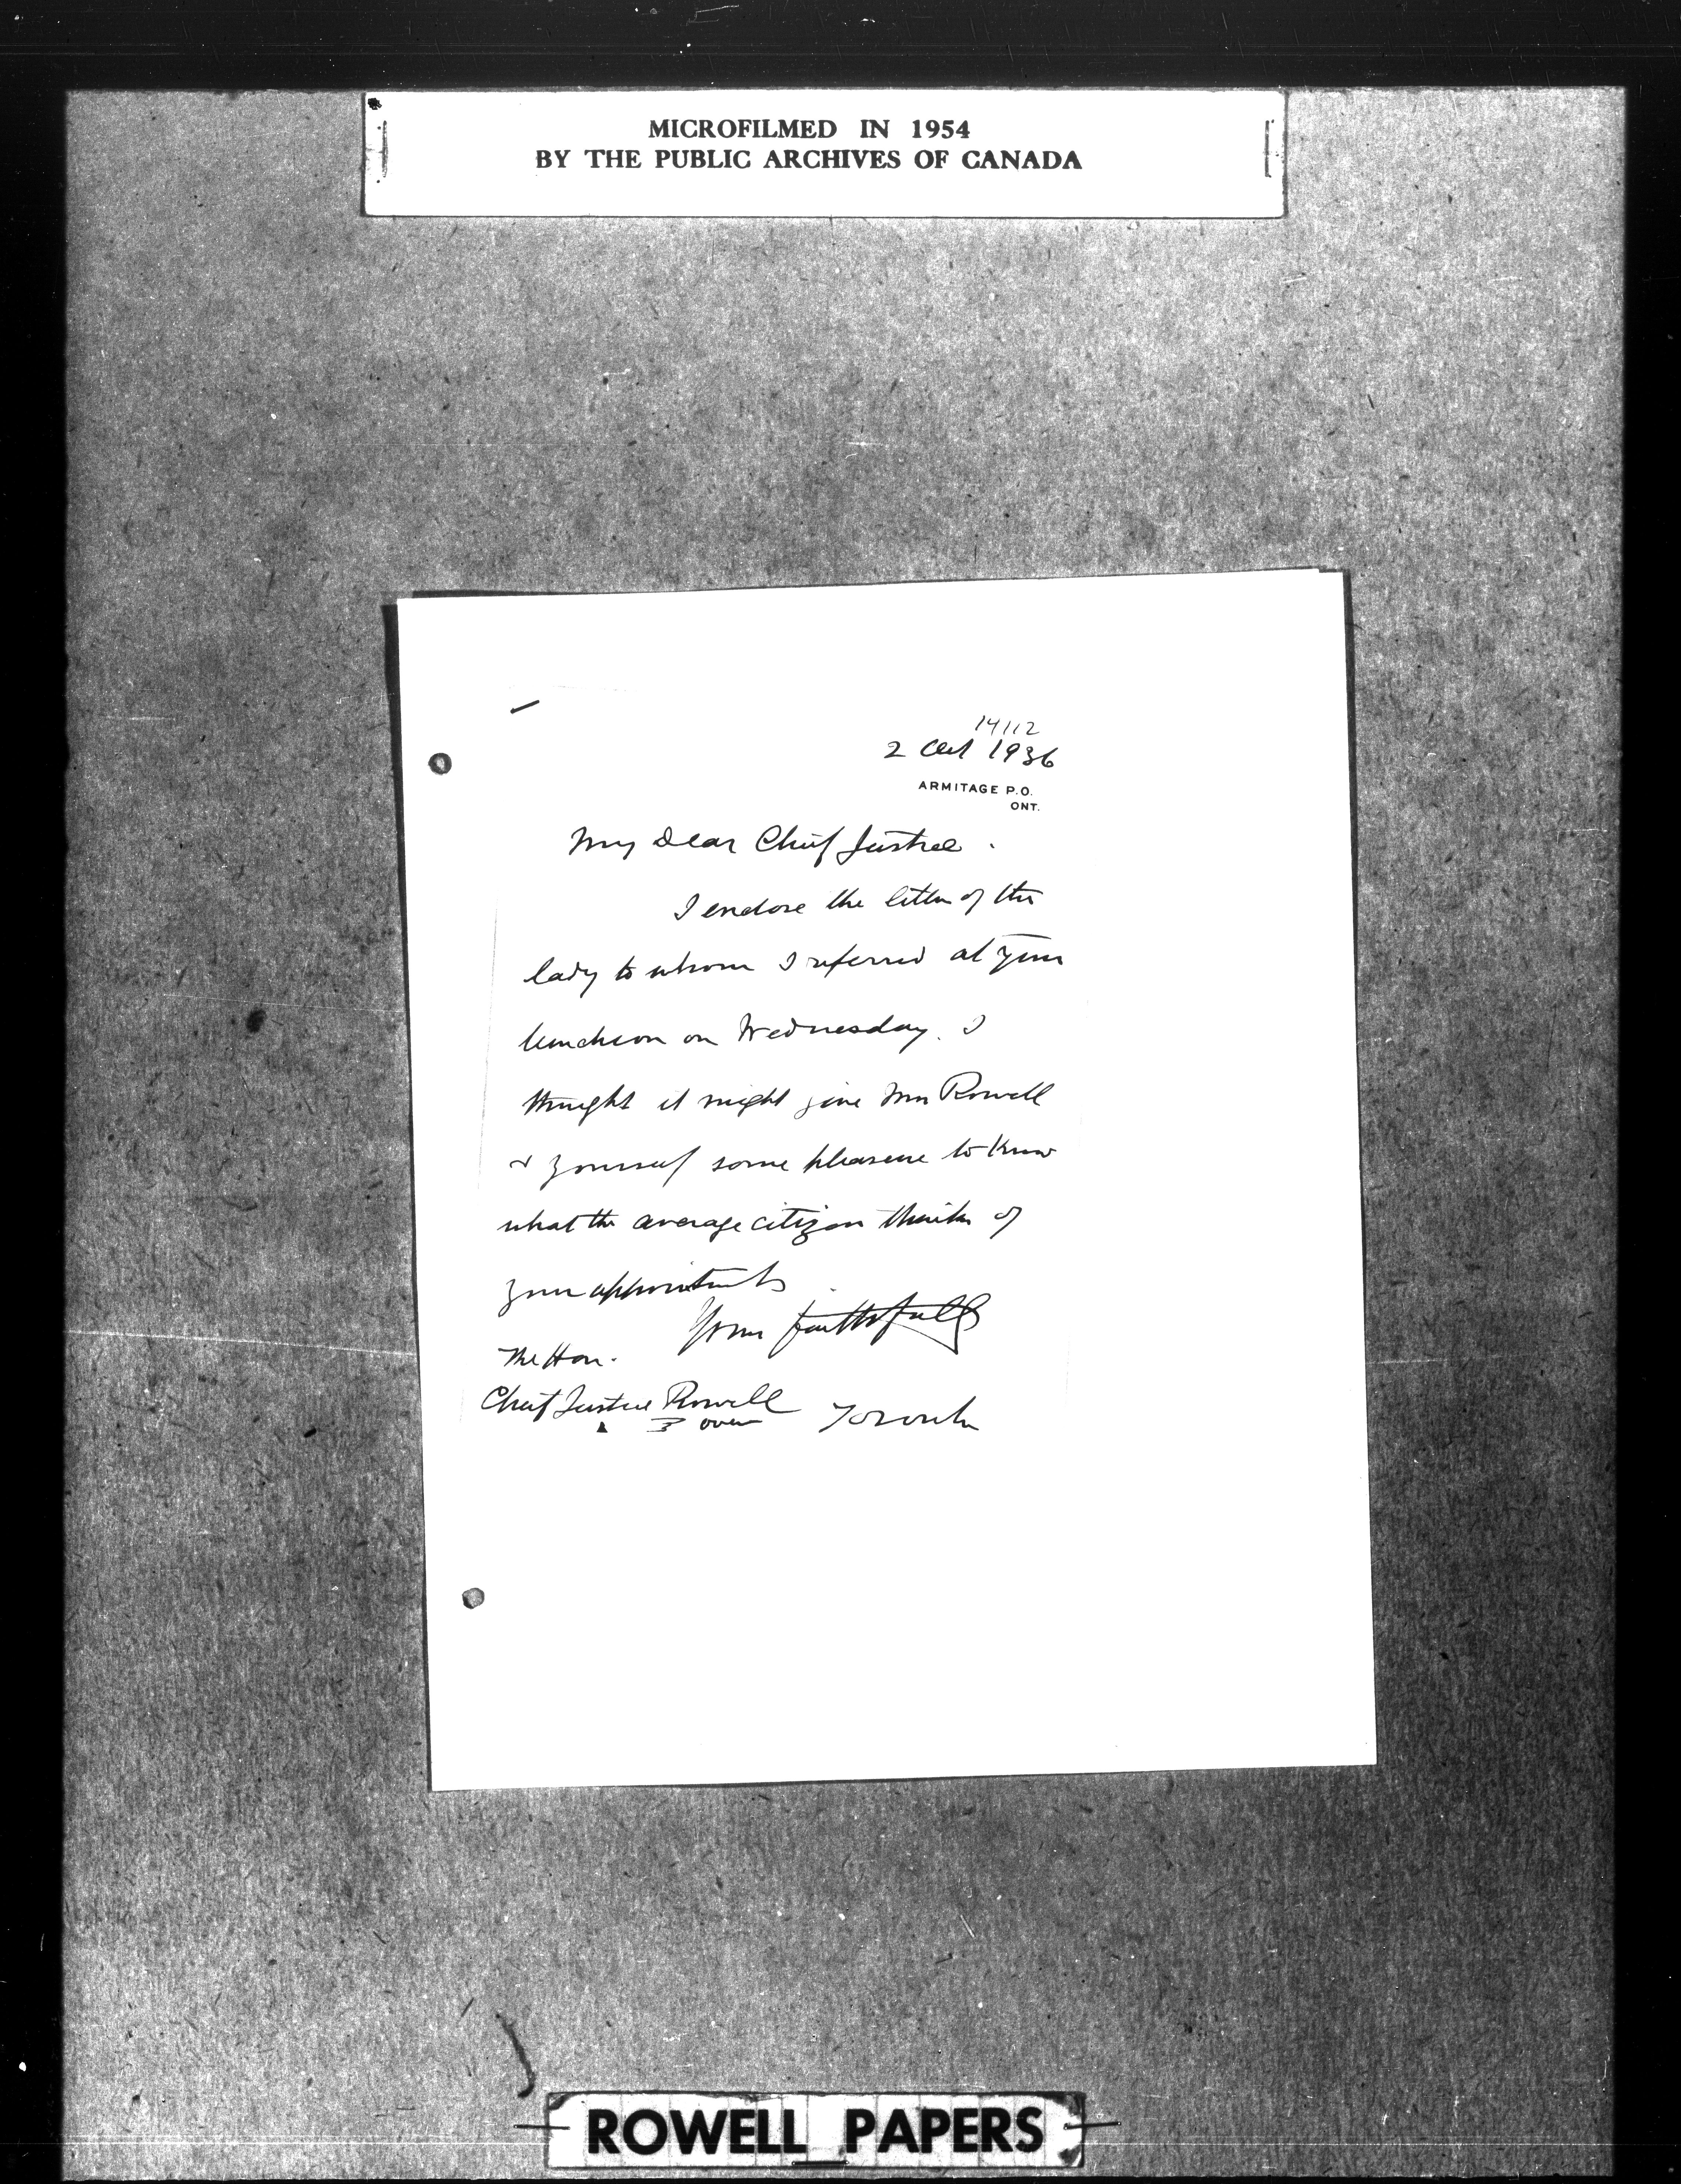 MICROFILMED IN 1954
BY THE PUBLIC ARCHIVES OF CANADA
14112
2 Oct 1936
ARMITAGE P.O.
ONT.
My Dear Chief Justice.
I enclose the letter of the
lady to whom I referred at your
luncheon on Wednesday. I
thought it might give Mrs Rowell
& yourself some pleasure to know
what the average citizen thinks of
your appointment
Yours faithfully
The Hon.
Chief Justice Rowell
over Toronto
ROWELL PAPERS